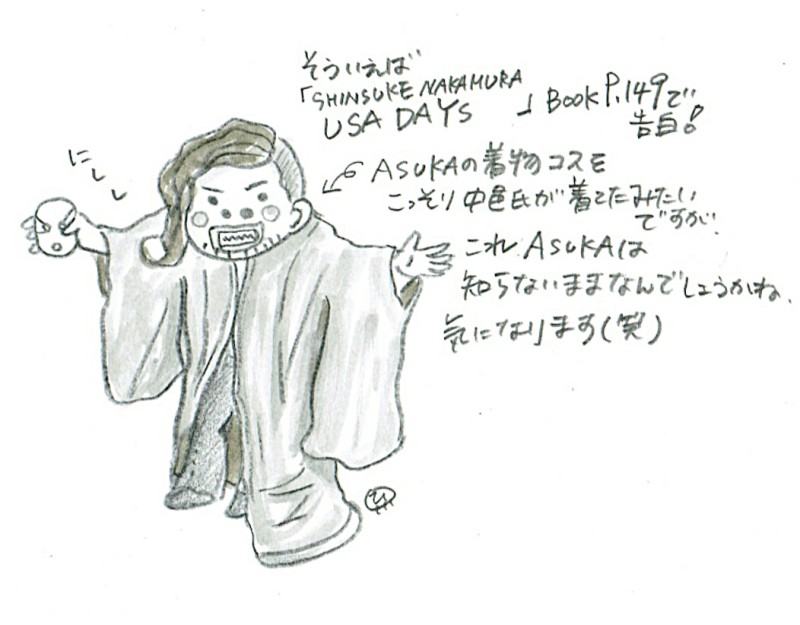 そういえば
「SHINSUKE NAKAMURA
USA DAYS 」BOOK P.149で
告白!
にししし
ASUKAの着物コスを
こっそり中邑氏が着てたみたい
ですが、
これ ASUKAは
知らないままなんでしょうかね、
気になります(笑)